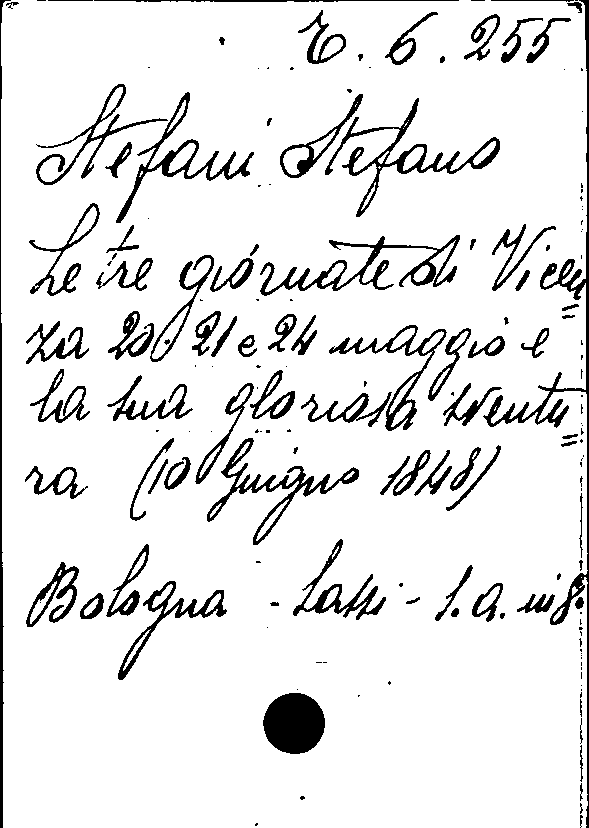 E. 6. 255
Stefani Stefano
Le tre giornate di Vicen=
za 20. 21 e 24 maggio e
la sua gloriosa sventu=
ra (10 Giugno 1848)
Bologna - Sassi - S. a. in 8.